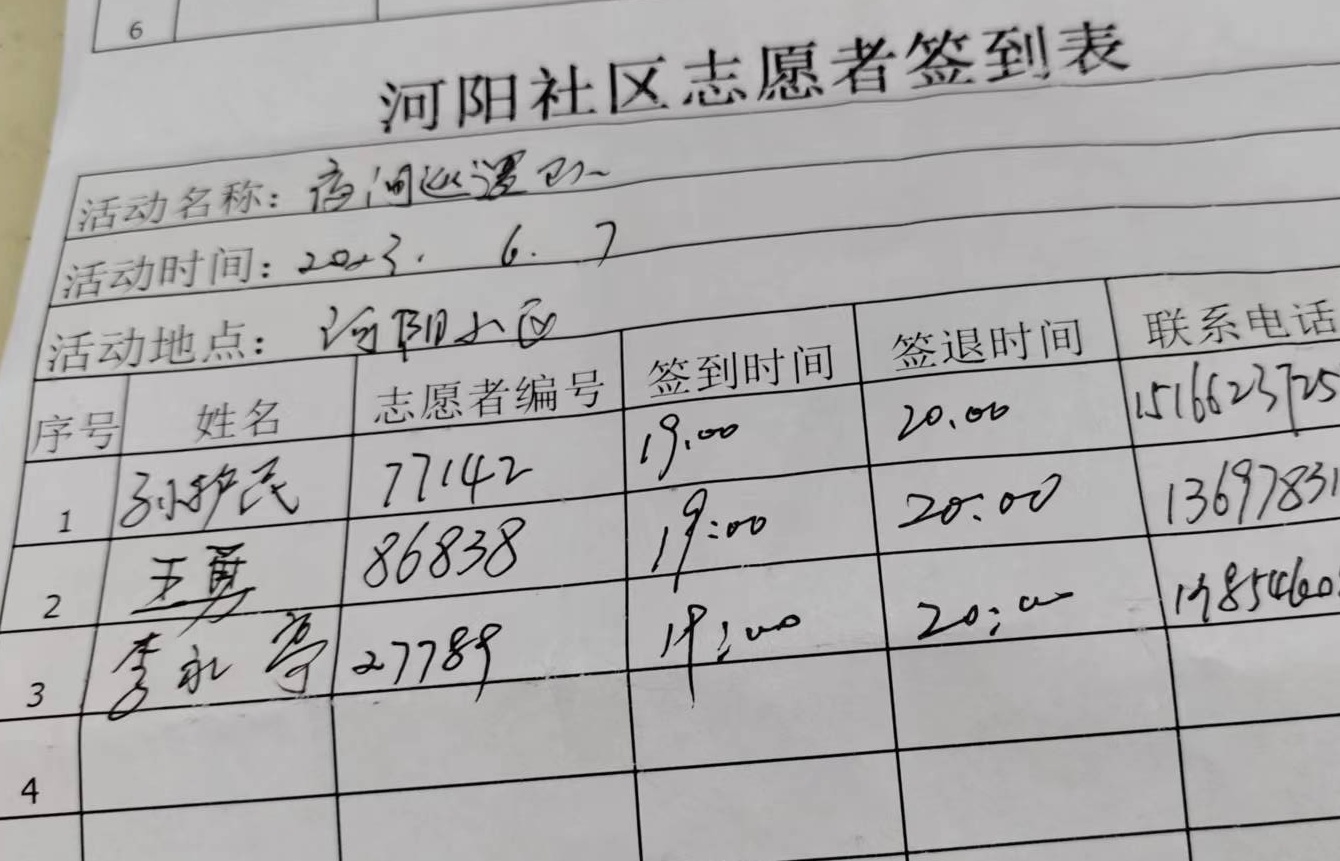 6
河阳社区志愿者签到表
活动名称：夜间巡逻
活动时间：2023. 6. 7
活动地点：河阳小区
序号 姓名 志愿者编号 签到时间 签退时间 联系电话
1 孙护民 77142 19.00 20.00 151662372​5
2 王勇 86838 19:00 20:00 13697831
3 李永亭 27789 19:00 20:00
4